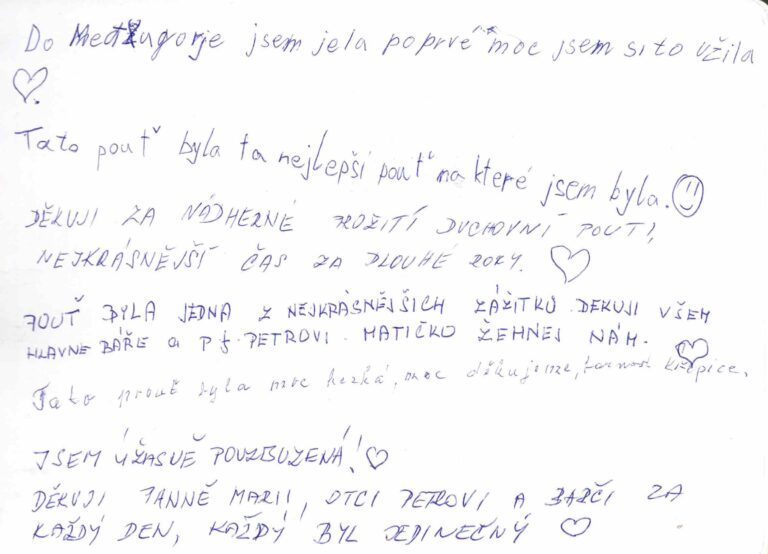 Do Medžugorje jsem jela poprvé moc jsem si to užila
♡.
Tato pouť byla ta nejlepší pouť na které jsem byla. ☺
DĚKUJI ZA NÁDHERNÉ PROŽITÍ DUCHOVNÍ POUTI,
NEJKRÁSNĚJŠÍ ČAS ZA DLOUHÉ ROKY. ♡
POUŤ BYLA JEDNA Z NEJKRÁSNĚJŠICH ZÁŽITKŮ DEKUJI VŠEM
HLAVNE BÁŘE a P. PETROVI. MATIČKO ŽEHNEJ NÁM. ♡
Tato pouť byla moc hezká, moc děkujeme, farnost Křepice.
JSEM ÚŽASNĚ POVZBUZENÁ! ♡
DĚKUJI PANNĚ MARII, OTCI PETROVI A BARČI ZA
KAŽDÝ DEN, KAŽDÝ BYL JEDINEČNÝ ♡